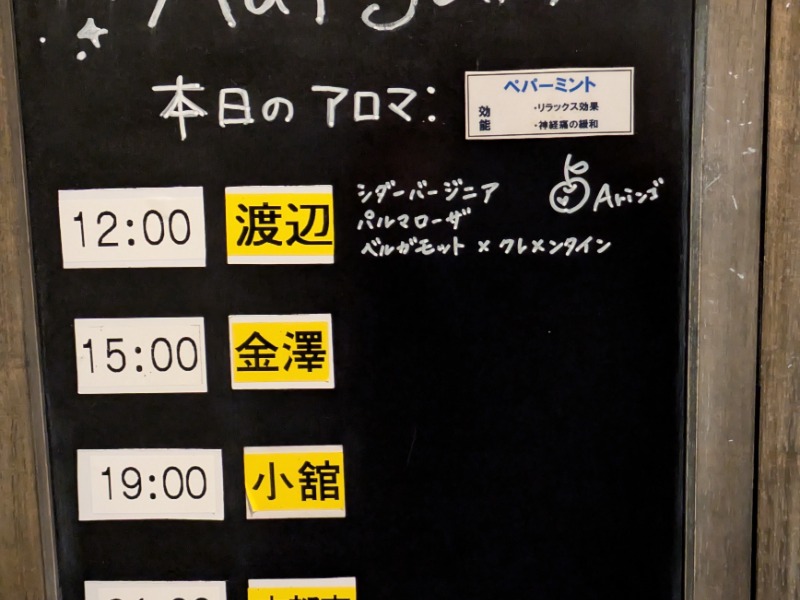 本日のアロマ:
ペパーミント
効能
・リラックス効果
・神経痛の緩和
12:00 渡辺
シダーバージニア
パルマローザ
ベルガモット × クレメンタイン
Aリンゴ
15:00 金澤
19:00 小舘